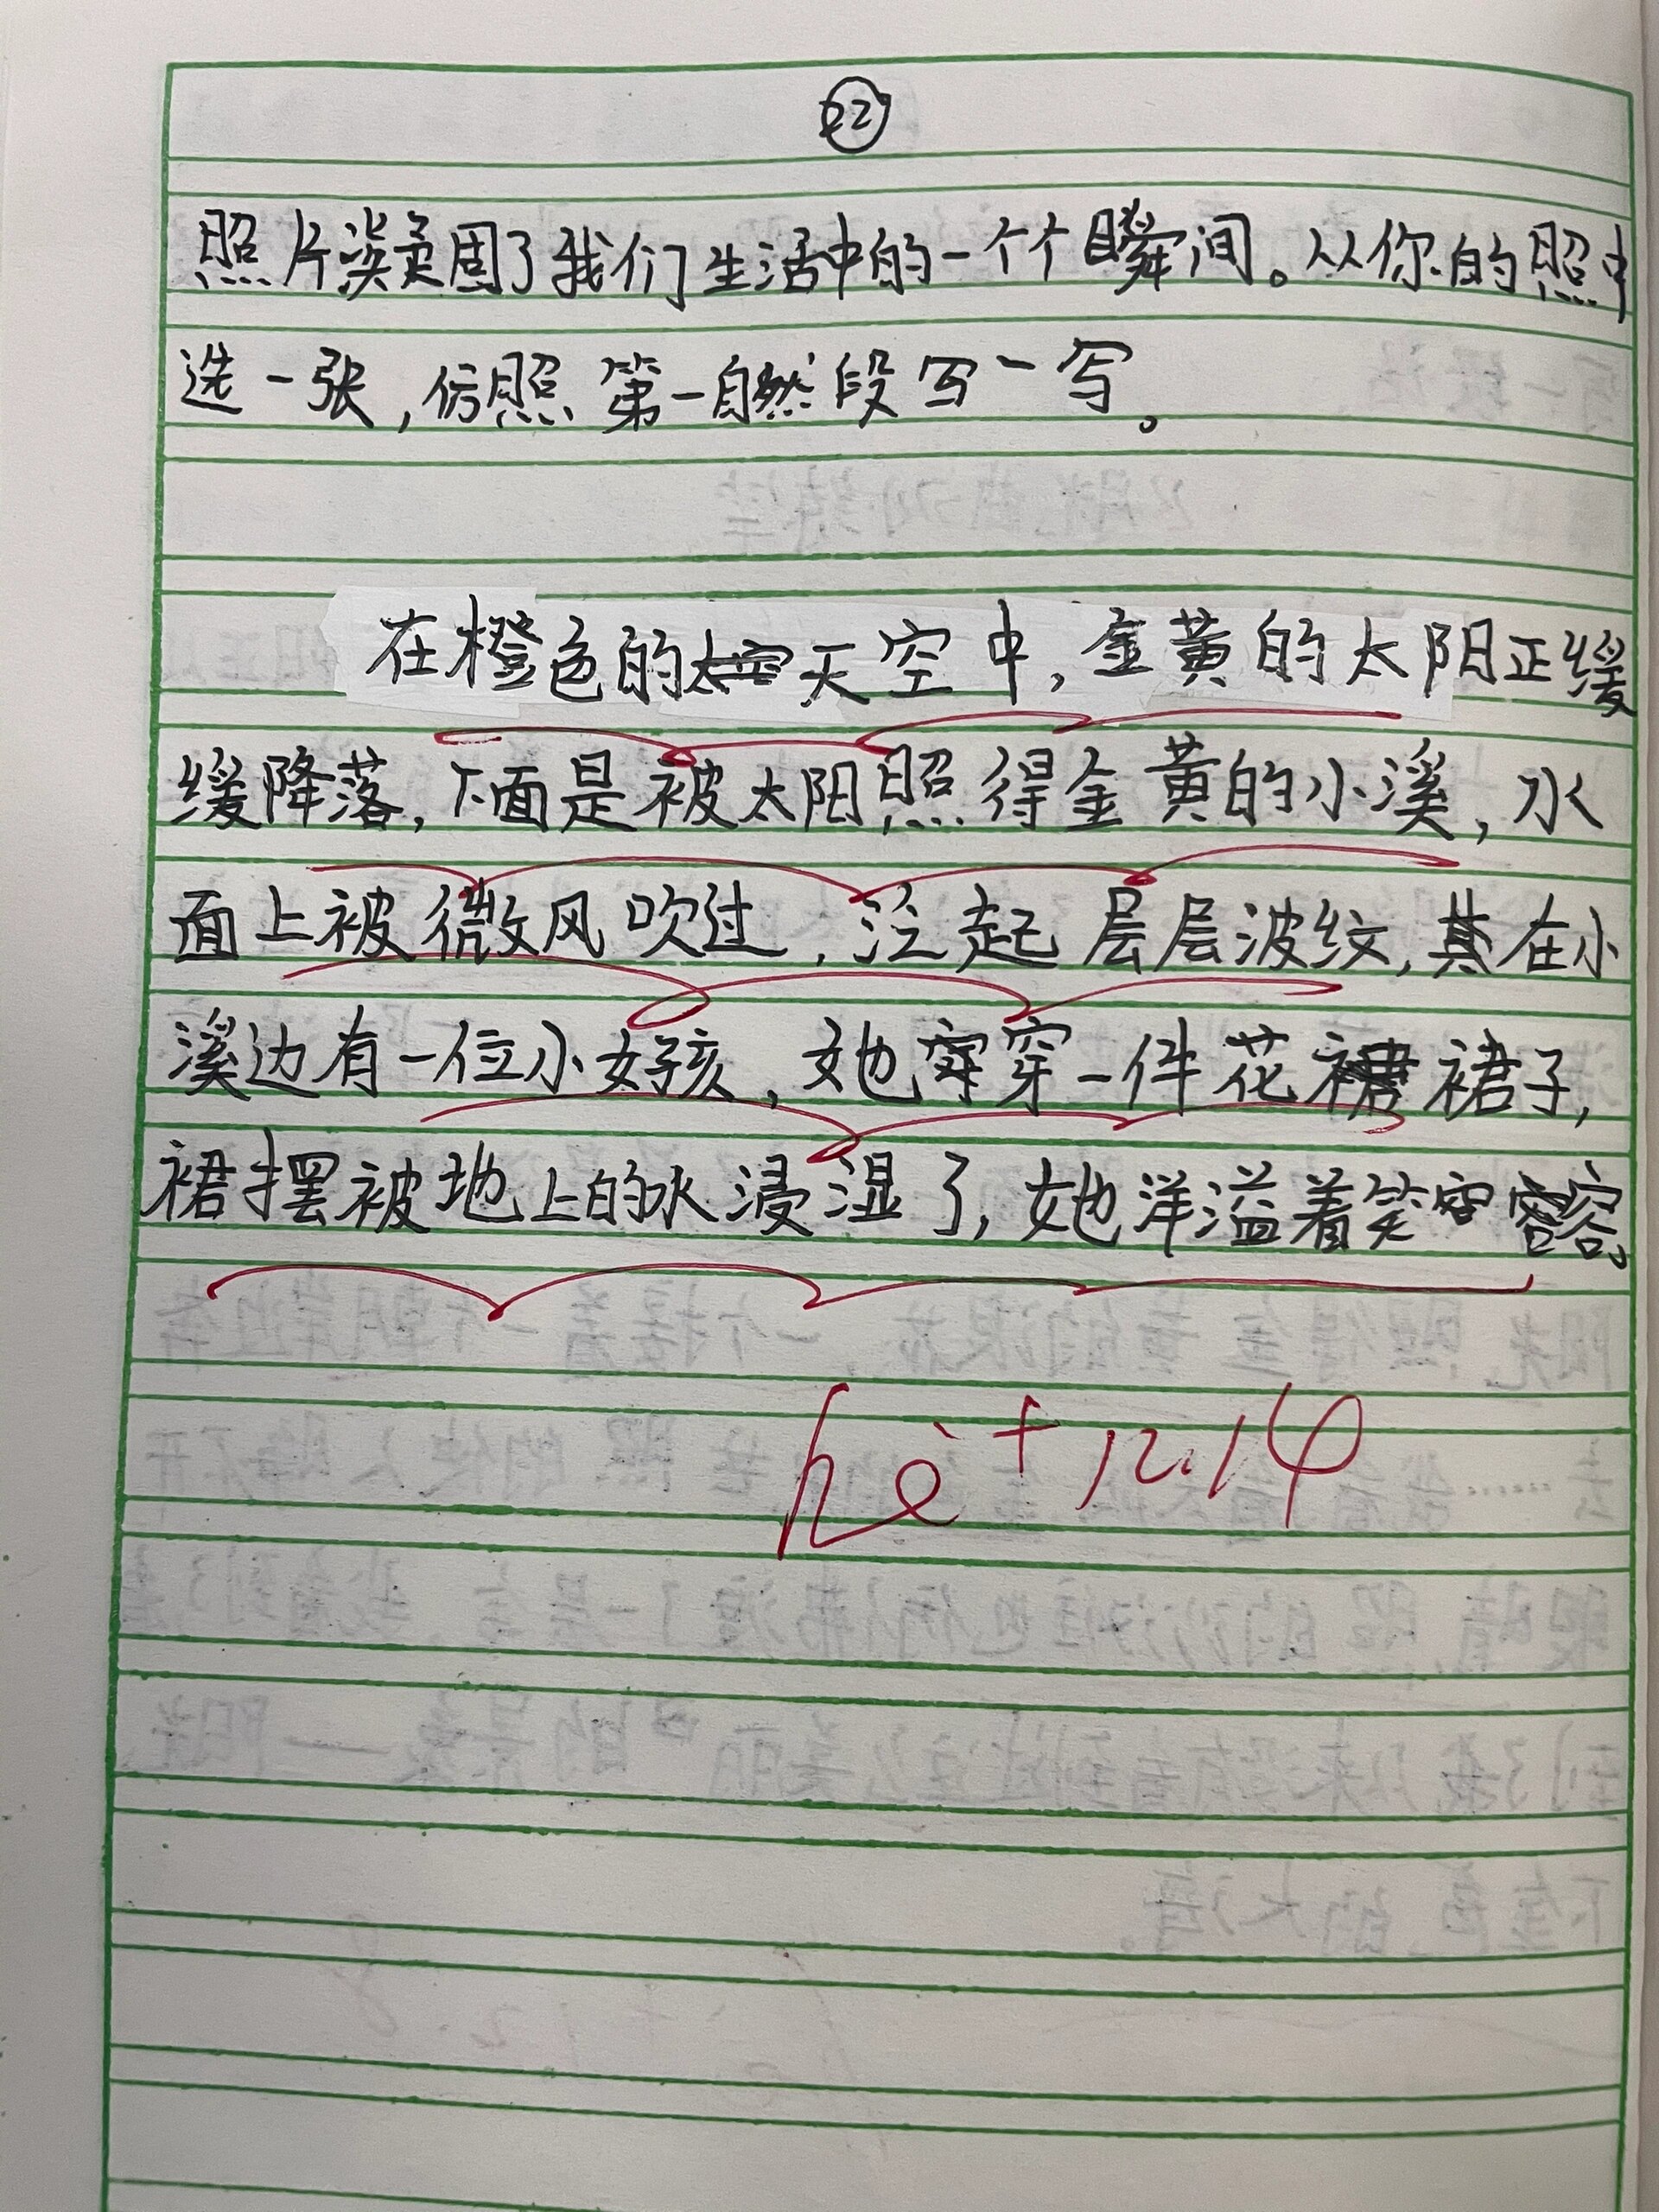 22
照片凝固了我们生活中的一个个瞬间。从你的照中
选一张，仿照第一自然段写一写。
在橙色的天空中，金黄的太阳正缓
缓降落，下面是被太阳照得金黄的小溪，水
面上被微风吹过，泛起层层波纹，在小
溪边有一位小女孩，她穿一件花裙子，
裙摆被地上的水浸湿了，她洋溢着笑容。
12.14